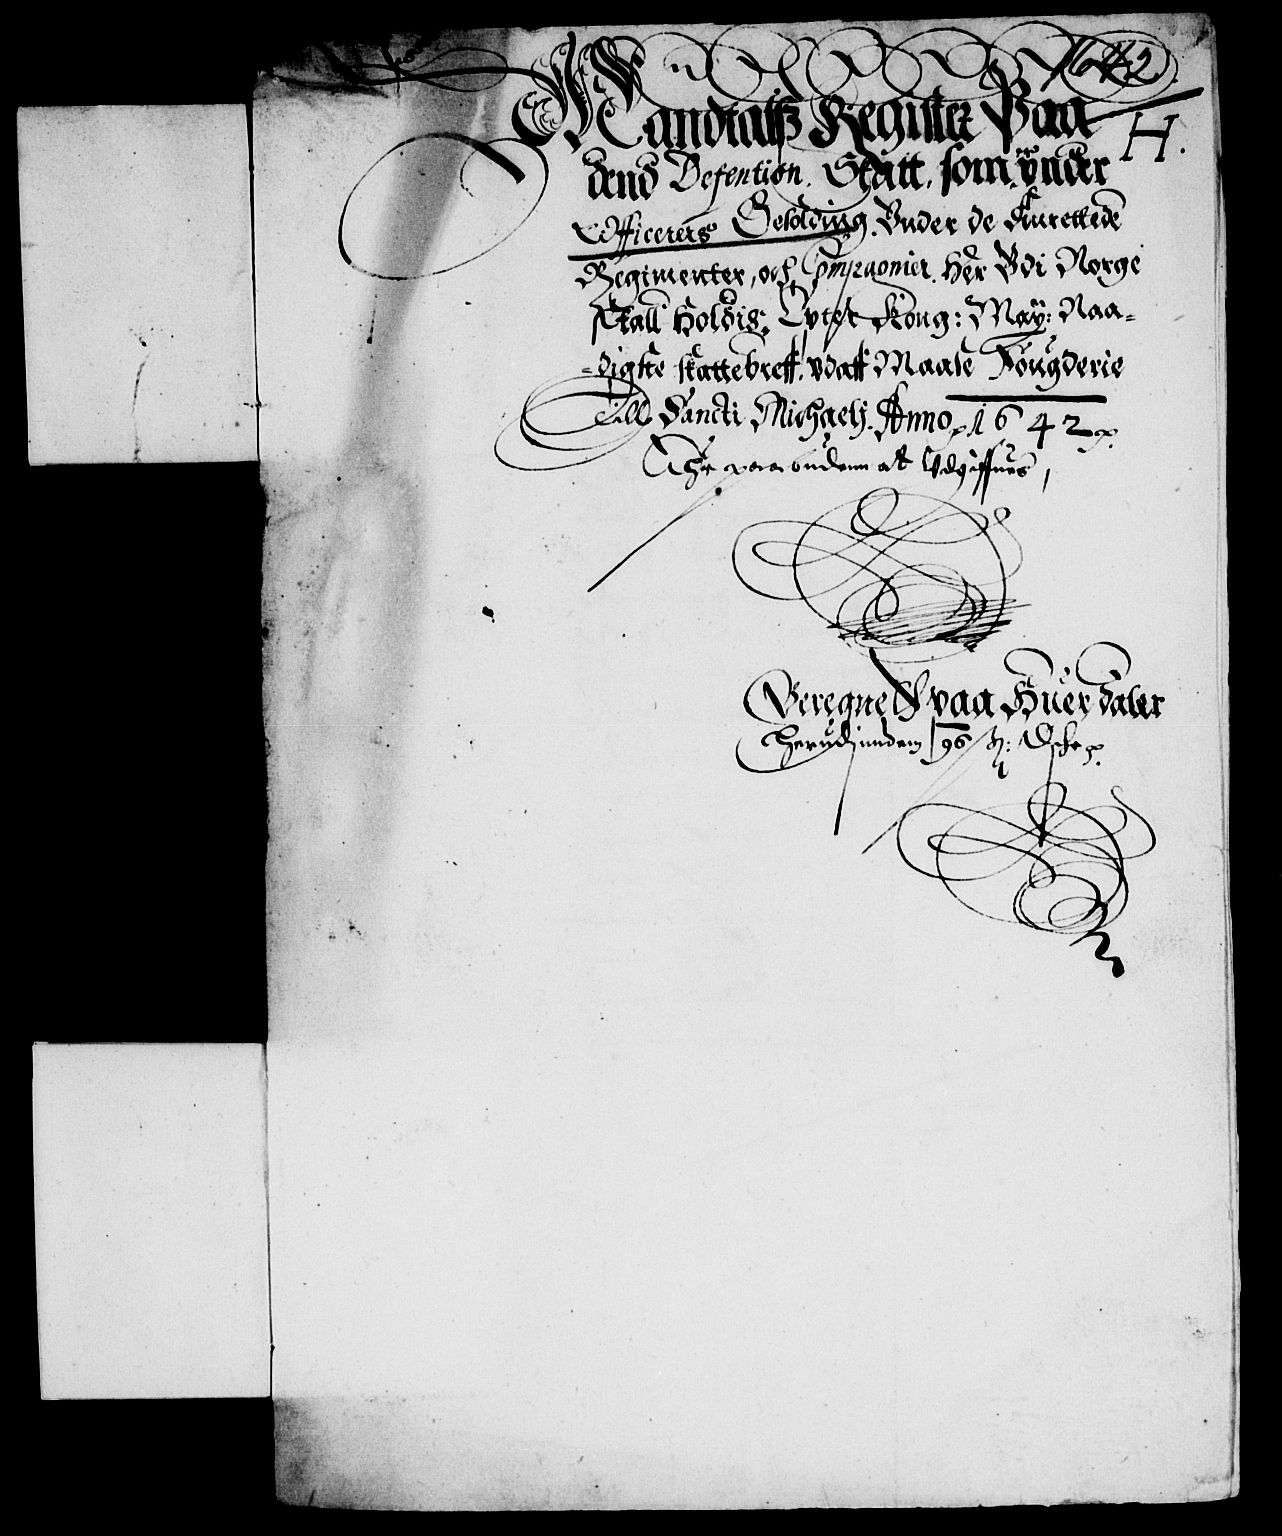 1642.
H.
Mandtalß Register Paa
dend Defention Skatt, som Vnder
Officerers Besolding, Vnder de Anrettede
Regimenter, och Compagnier Her Vdi Norge
skall holdis, Kong: May: Naa=
=digste skattebreff, vdaff Maale Fougderie
Till Sancti Michaelj Anno 1642
at Vdgiffues
Beregnet paa Huer daler
96